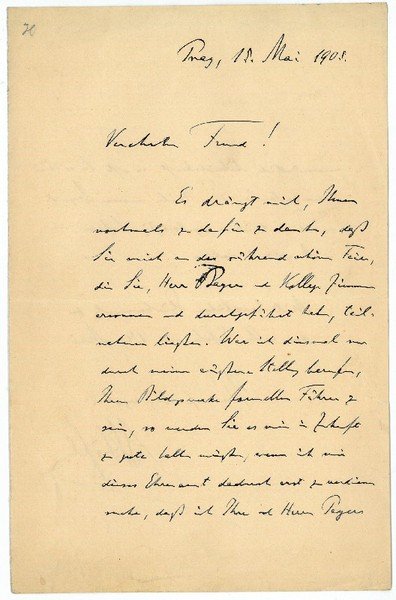 20
Prag, 18. Mai 1908.
Verehrter Freund!
Es drängt mich, Ihnen
nochmals dafür zu danken, daß
Sie mich an der rührend schönen Feier,
die Sie, Herr Payer und Kollege Zimmer
ersonnen und durchgeführt haben, teil-
nehmen ließen. War ich diesmal nur
durch meine äußere Stellung berufen,
Ihrem formellen Führer zu
sein, so werden Sie es mir in Zukunft
zu gute halten müssen, wenn ich mir
dieses Ehrenamt dadurch erst zu verdienen
suche, daß ich Ihre und Herrn Payers